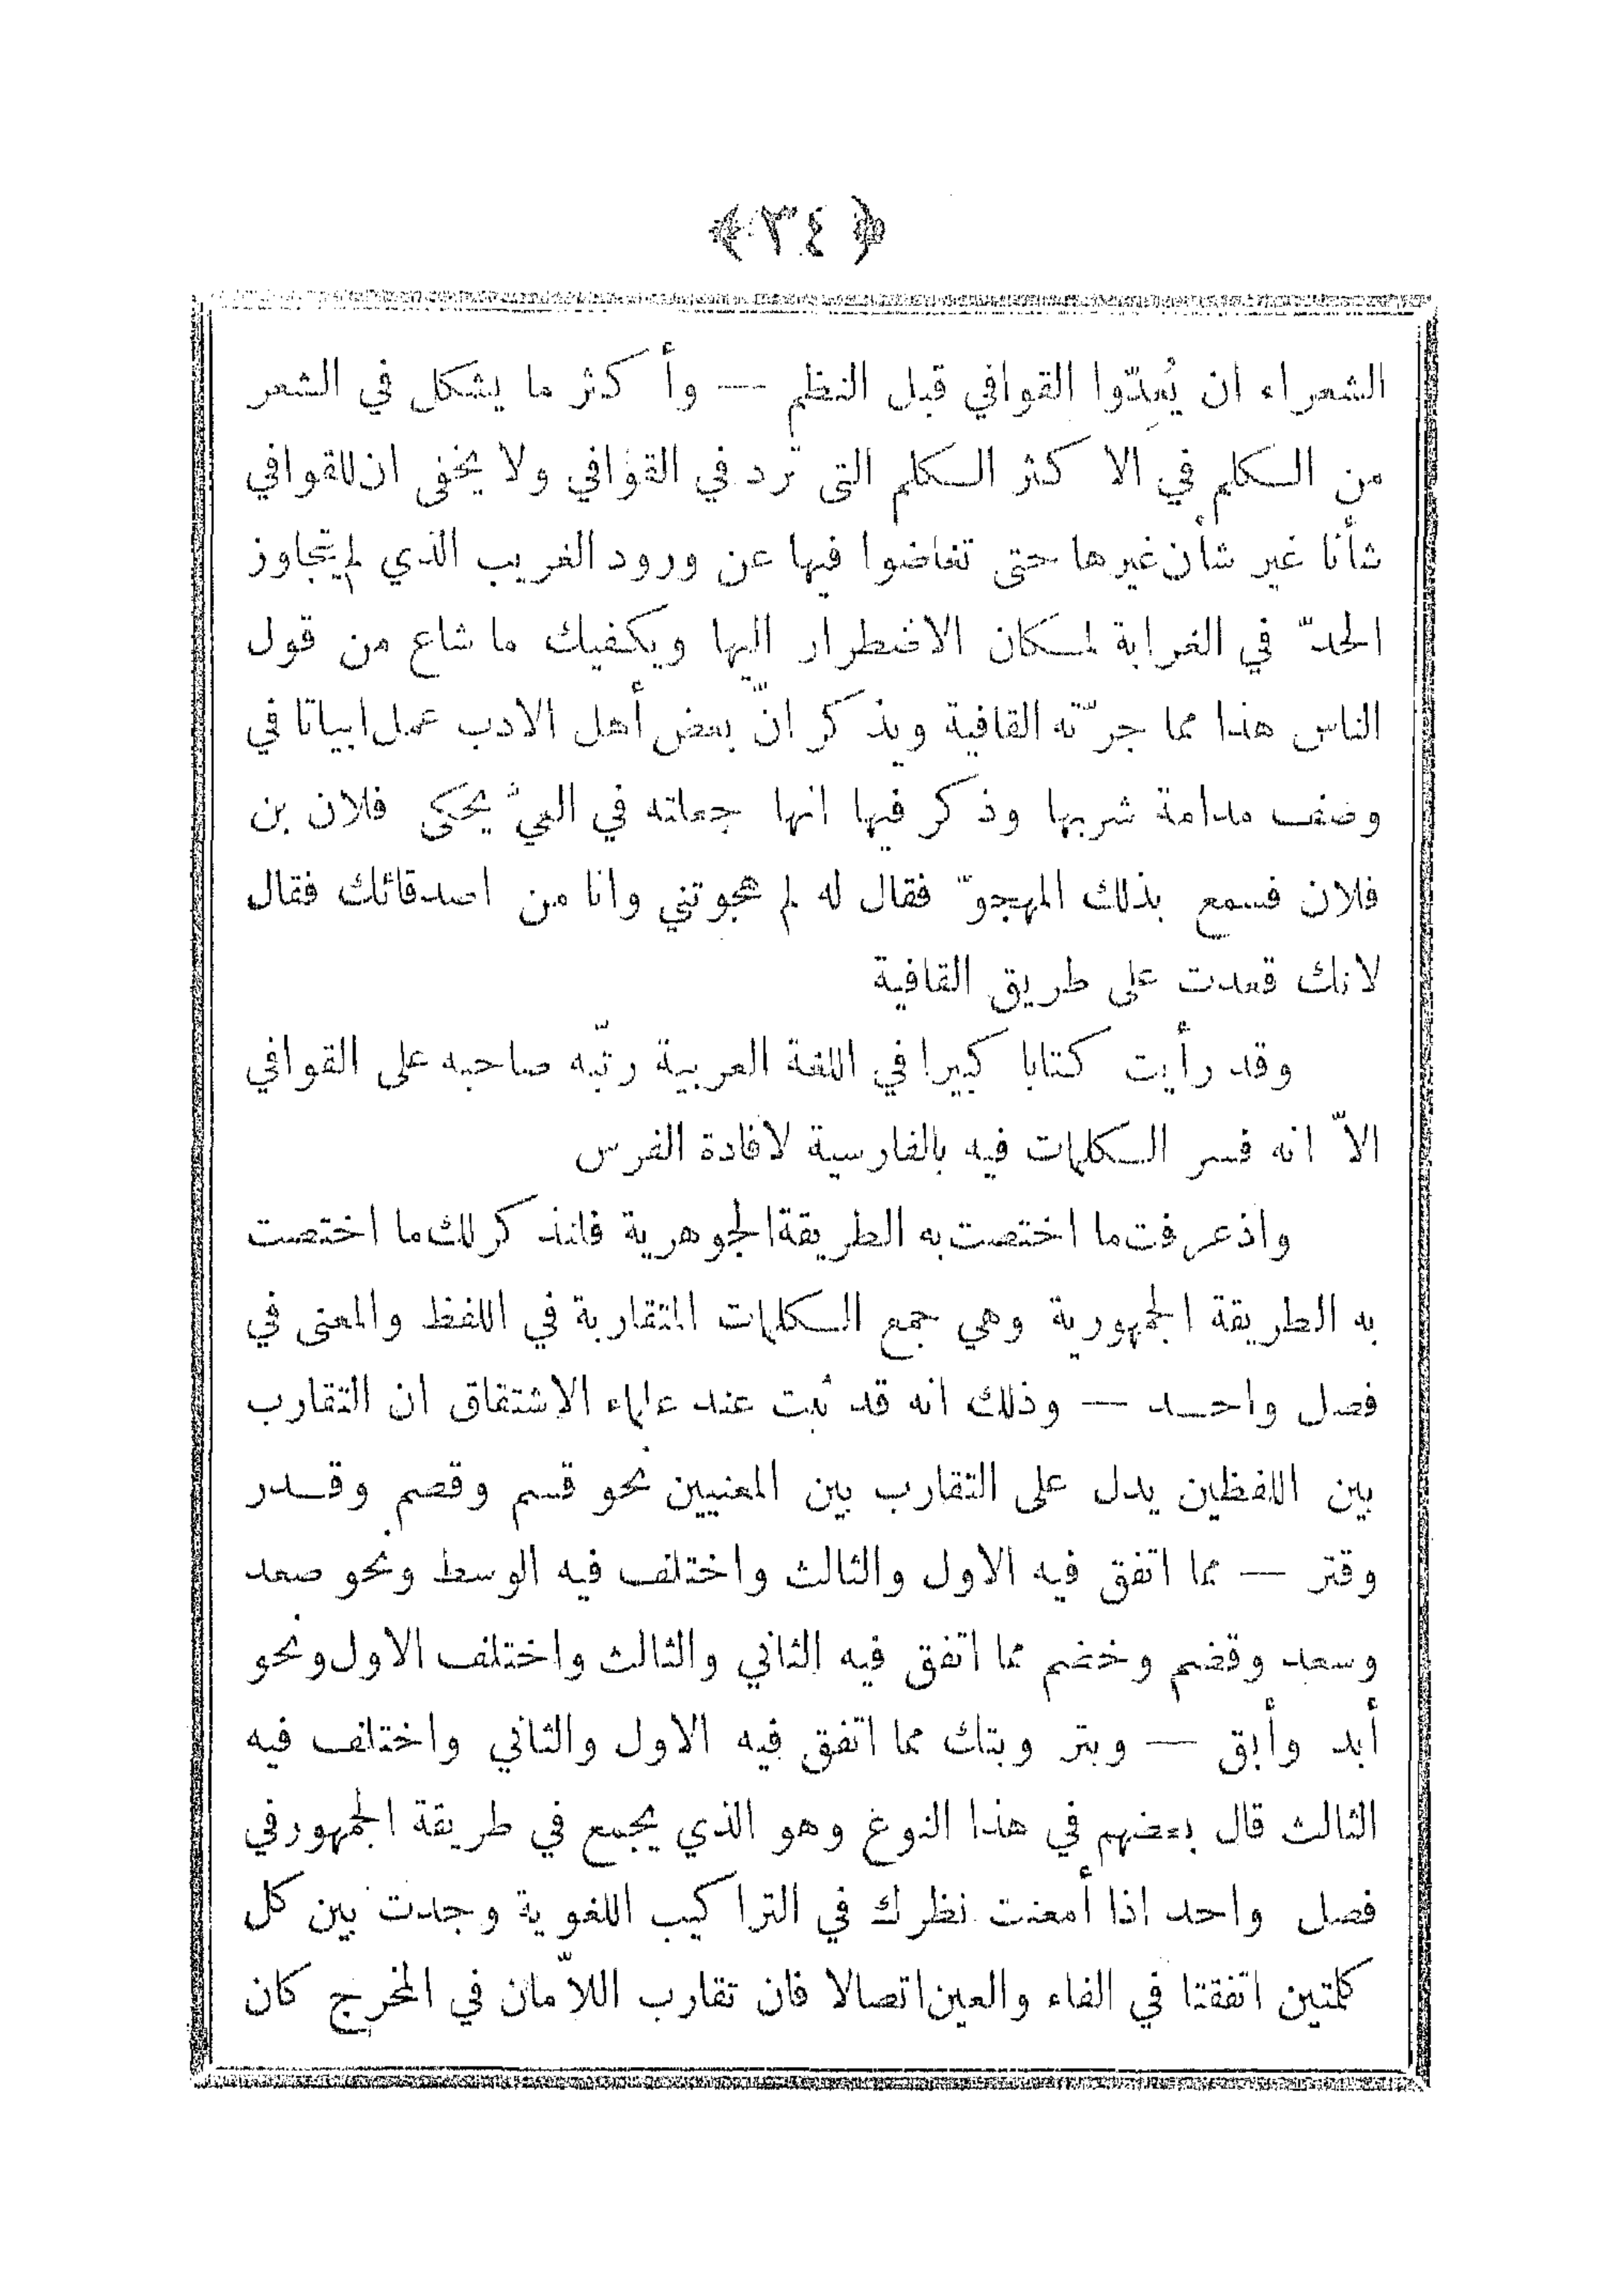 ﴿ ٣٤ ﴾
الشعراء ان يُعِدّوا القوافي قبل النظم — وأكثر ما يشكل في الشعر
من الكلم في الاكثر الكلم التى ترد في القوافي ولا يخفى ان للقوافي
شأنا غير شأن غيرها حتى تغاضوا فيها عن ورود الغريب الذي لم يتجاوز
الحدّ في الغرابة لمكان الاضطرار اليها ويكفيك ما شاع من قول
الناس هذا مما جرّته القافية ويذكر انّ بعض أهل الادب عمل ابياتا في
وصف مدامة شربها وذكر فيها انها جعلته في العيّ يحكى فلان بن
فلان فسمع بذلك المهجوّ فقال له لم هجوتني وانا من اصدقائك فقال
لانك قعدت على طريق القافية
وقد رأيت كتابا كبيرا في اللغة العربية رتّبه صاحبه على القوافي
الاّ انه فسر الكلمات فيه بالفارسية لافادة الفرس
واذ عرفت ما اختصت به الطريقة الجوهرية فلنذكر لك ما اختصت
به الطريقة الجمهورية وهي جمع الكلمات المتقاربة في اللفظ والمعنى في
فصل واحد — وذلك انه قد ثبت عند علماء الاشتقاق ان التقارب
بين اللفظين يدل على التقارب بين المعنيين نحو قسم وقصم وقدر
وقتر — مما اتفق فيه الاول والثالث واختلف فيه الوسط ونحو صعد
وسعد وقضم وخضم مما اتفق فيه الثاني والثالث واختلف الاول ونحو
أبد وأبق — وبتر وبتك مما اتفق فيه الاول والثاني واختلف فيه
الثالث قال بعضهم في هذا النوع وهو الذي يجمع في طريقة الجمهور في
فصل واحد اذا أمعنت نظرك في التراكيب اللغوية وجدت بين كل
كلمتين اتفقتا في الفاء والعين اتصالا فان تقارب اللاّمان في المخرج كان